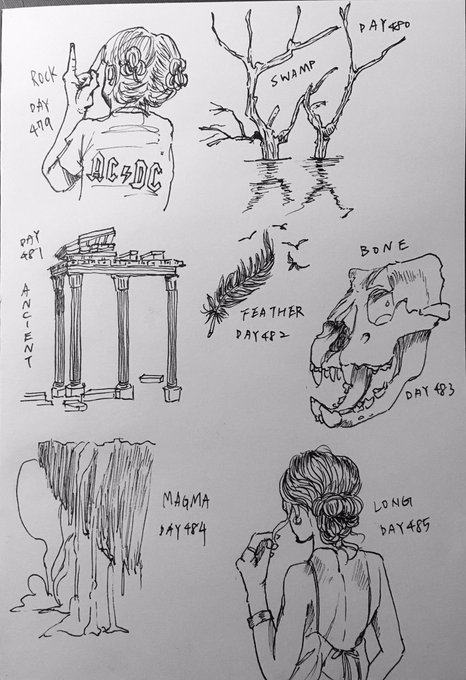 ROCK
DAY
479
AC⚡DC
DAY 480
SWAMP
DAY
481
ANCIENT
FEATHER
DAY 482
BONE
DAY 483
MAGMA
DAY 484
LONG
DAY 485